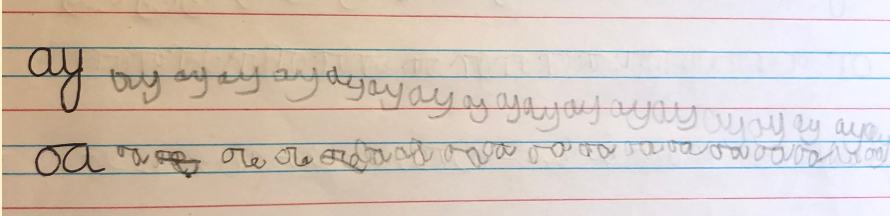 ay ay ay ay ay ay ay ay ay ay ay ay ay ay ay ay ay ay ay
oa oa oa oa oa oa oa oa oa oa oa oa oa oa oa oa